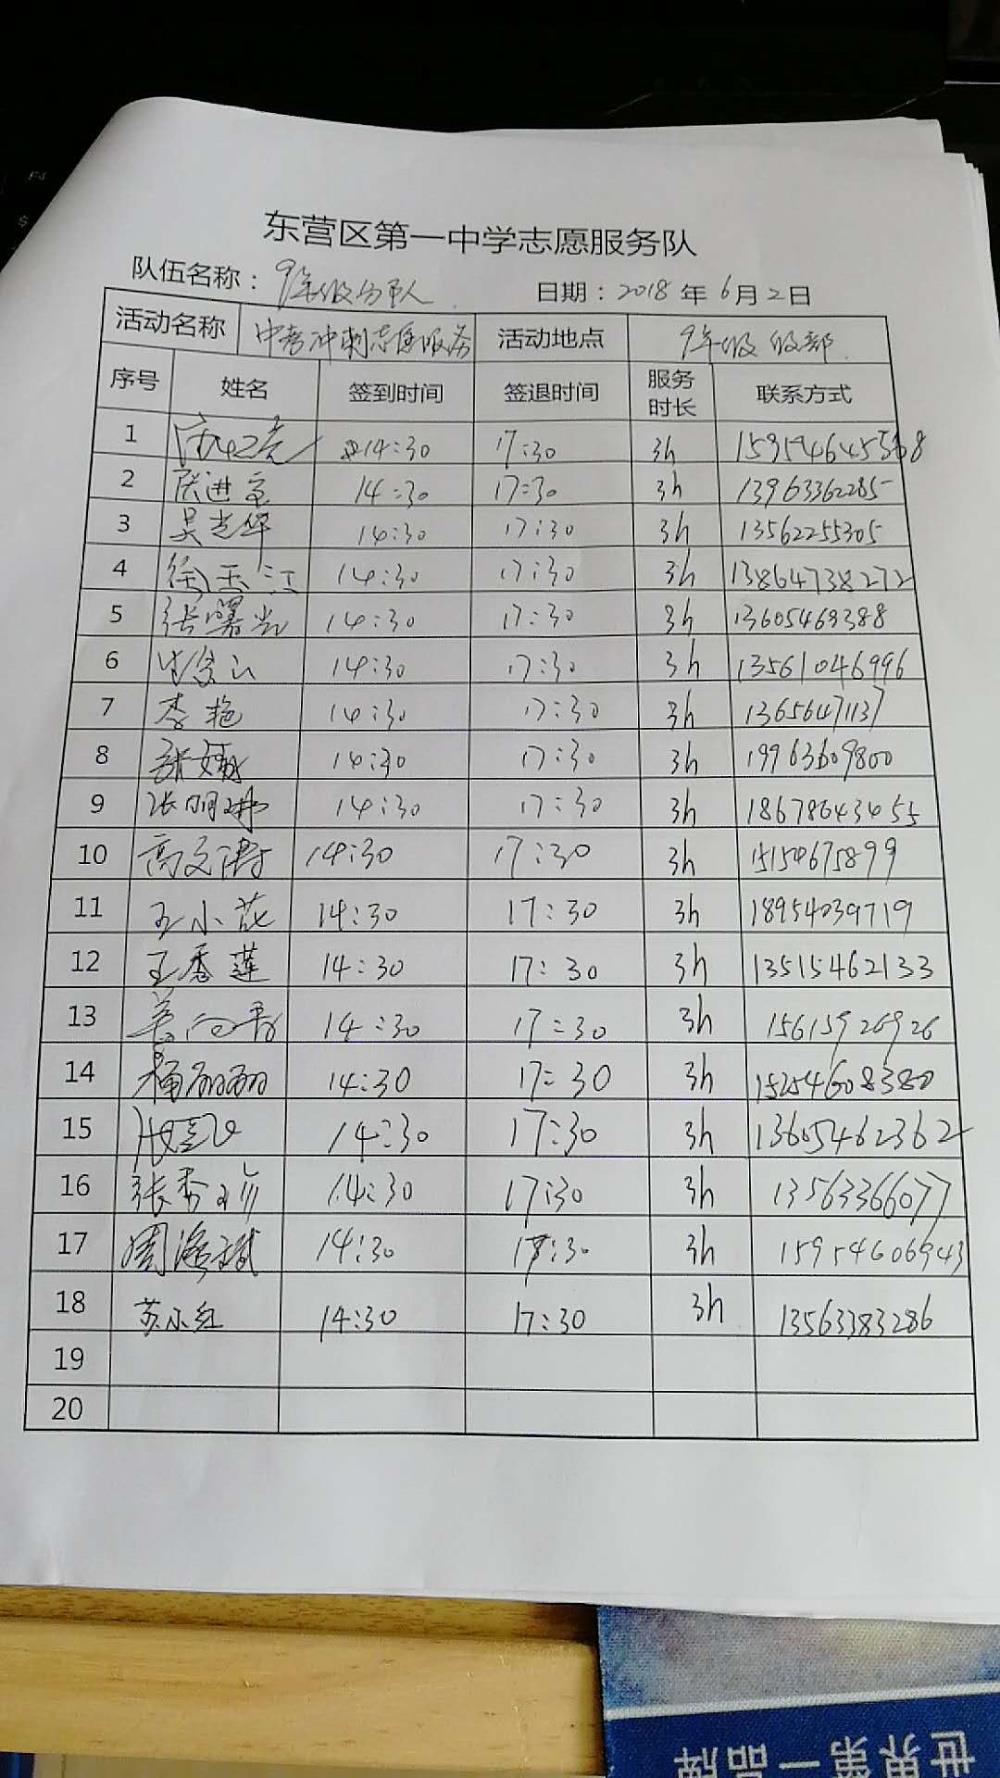 东营区第一中学志愿服务队
队伍名称：9年级分队 日期：2018年6月2日
活动名称 中考冲刺志愿服务 活动地点 9年级级部
序号 姓名 签到时间 签退时间 服务时长 联系方式
1 14:30 17:30 3h
2 14:30 17:30 3h 13963362285
3 吴光华 14:30 17:30 3h 13562255305
4 徐玉江 14:30 17:30 3h 13864738272
5 张曙光 14:30 17:30 3h 13605469388
6 14:30 17:30 3h 13561046996
7 李艳 14:30 17:30 3h 13656471137
8 14:30 17:30 3h 19963609800
9 14:30 17:30 3h 18678643455
10 高文涛 14:30 17:30 3h 15154675899
11 王小花 14:30 17:30 3h 18954039719
12 王秀莲 14:30 17:30 3h 13515462133
13 14:30 17:30 3h 15615926926
14 14:30 17:30 3h 15254608380
15 14:30 17:30 3h 13605462362
16 14:30 17:30 3h 13563366077
17 周海斌 14:30 17:30 3h 15954606943
18 苏小红 14:30 17:30 3h 13563383286
19
20
世界第一品牌